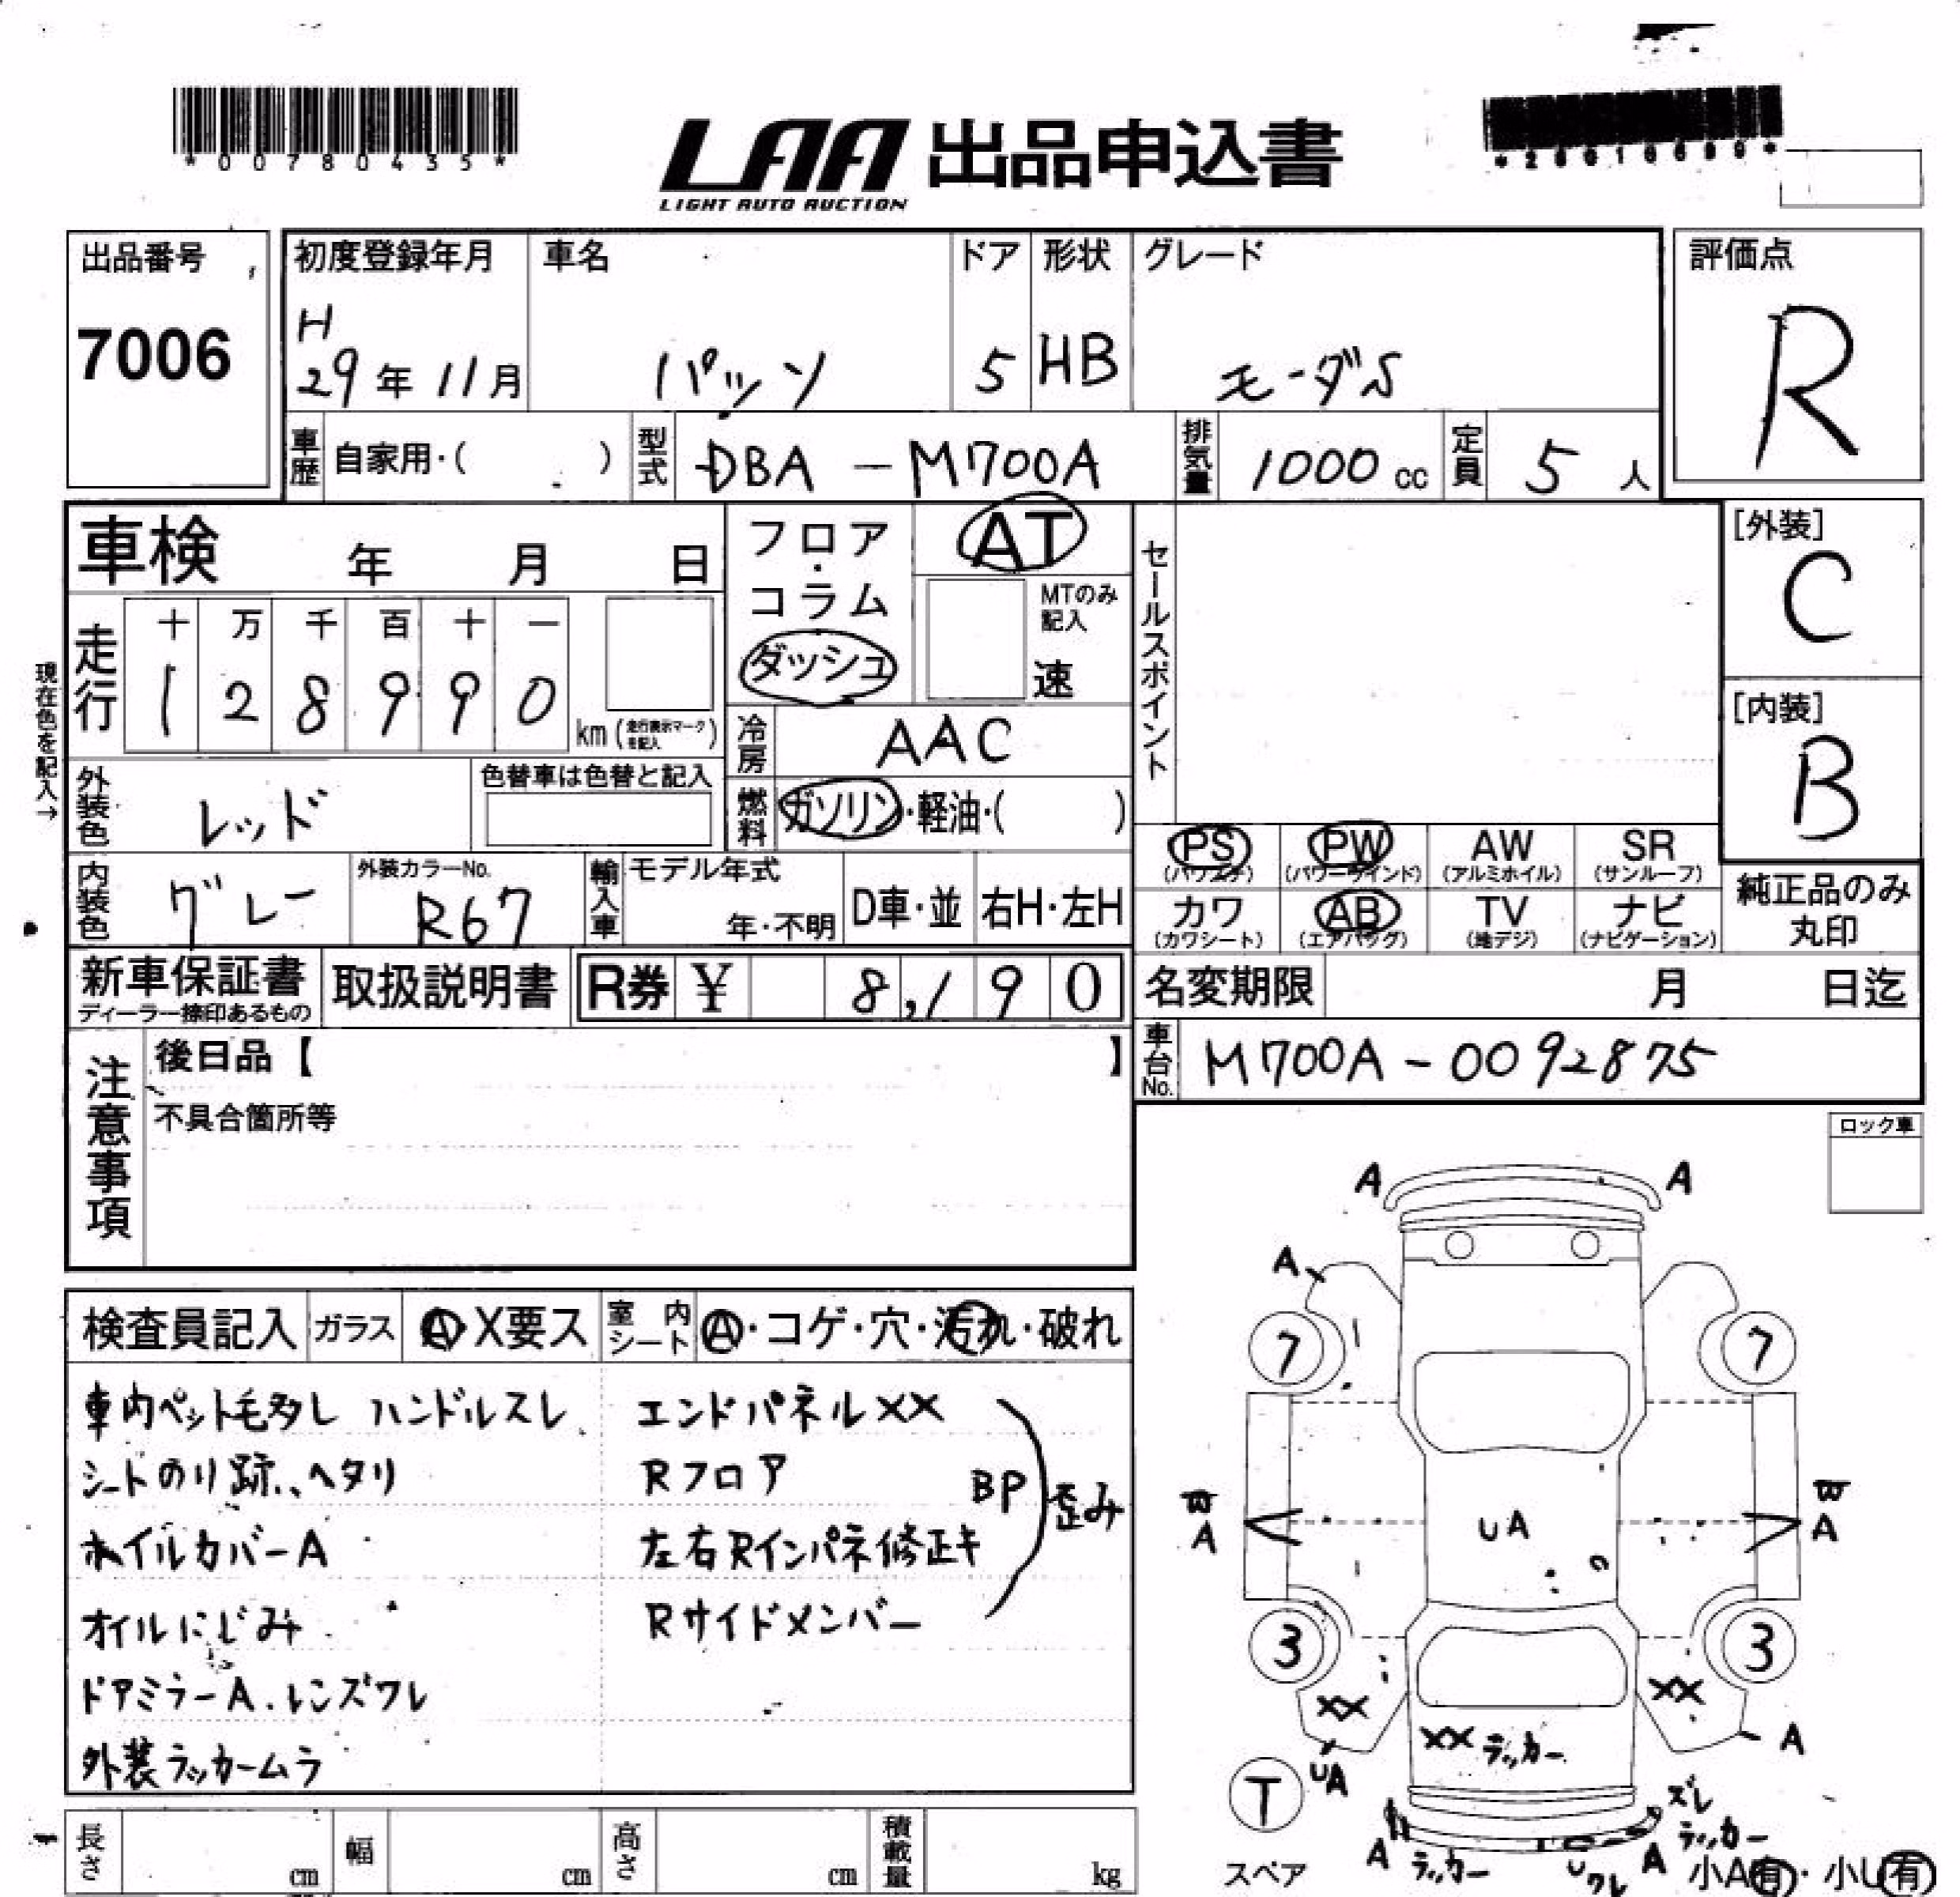 *00780435*
LAA 出品申込書
LIGHT AUTO AUCTION
出品番号
7006
初度登録年月
H
29年 11月
車名
パッソ
ドア
5
形状
HB
グレード
モーダS
評価点
R
車歴 自家用・( )
型式 DBA - M700A
排気量 1000 cc
定員 5 人
車検 年 月 日
フロア・コラム
ダッシュ
AT
MTのみ記入
速
セールスポイント
[外装]
C
[内装]
B
現在色を記入→
走行
十 万 千 百 十 一
1 2 8 9 9 0
km (走行表示マークを記入)
冷房 AAC
外装色 レッド
色替車は色替と記入
燃料 ガソリン・軽油・( )
PS AW PW SR
(パワステ) (パワーウインド) (アルミホイル) (サンルーフ)
カワ AB TV ナビ
(カワシート) (エアバッグ) (地デジ) (ナビゲーション)
純正品のみ
丸印
内装色 グレー
外装カラーNo.
R67
輸入車
モデル年式
年・不明
D車・並
右H・左H
新車保証書
ディーラー捺印あるもの
取扱説明書
R券 ¥ 8,190
名変期限 月 日迄
車台No. M700A-0092875
注意事項
後日品【 】
不具合箇所等
ロック車
検査員記入
ガラス A・X要ス
室内シート A・コゲ・穴・汚れ・破れ
車内ペット毛多し ハンドルスレ
シートのり跡、ヘタリ
ホイルカバーA
オイルにじみ
ドアミラーA.レンズワレ
外装ラッカームラ
エンドパネルXX
Rフロア
左右Rインパネ修正キ
Rサイドメンバー
BP
歪み
A A
A
7 7
A A
UA
3 3
XX XX
XX ラッカー
UA
A
T
スペア
ズレ
ラッカー
A ラッカー
Uワレ
A
小A有・小U有
長さ cm
幅 cm
高さ cm
積載量 kg